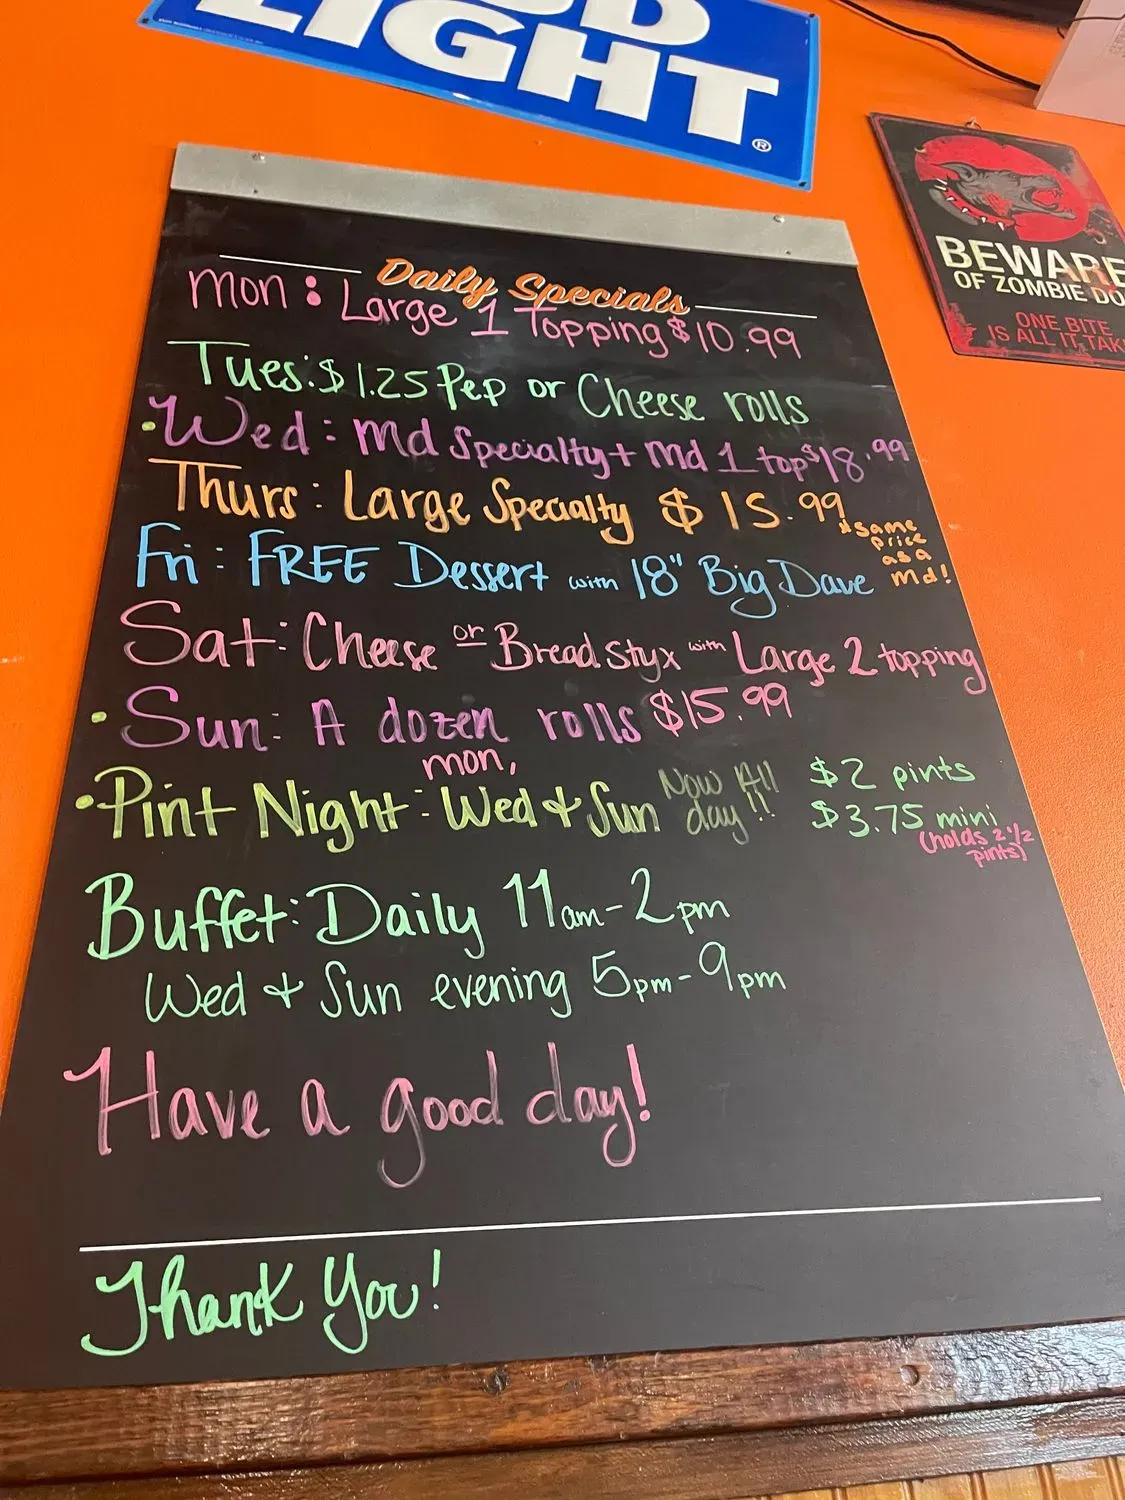 LIGHT®
BEWARE
OF ZOMBIE
ONE BITE
IS ALL IT
Daily Specials
Mon: Large 1 Topping $10.99
Tues: $1.25 Pep or Cheese rolls
Wed: Md Specialty + Md 1 top $18.99
Thurs: Large Specialty $15.99
*same
price
as a
md!
Fri: FREE Dessert with 18" Big Dave
Sat: Cheese or Bread Styx with Large 2 topping
Sun: A dozen rolls $15.99
mon,
Pint Night: Wed & Sun Now All
day!!
$2 pints
$3.75 mini
(holds 2 1/2
pints)
Buffet: Daily 11am-2pm
Wed & Sun evening 5pm-9pm
Have a good day!
Thank You!